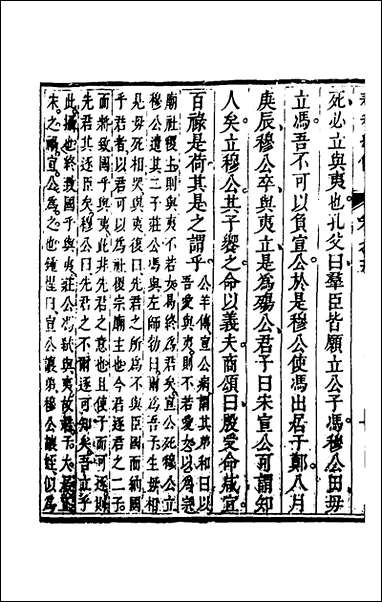 死必立與夷也孔父曰羣臣皆願立公子馮穆公曰毋
立馮吾不可以負宣公於是穆公使馮出居于鄭八月
庚辰穆公卒與夷立是為殤公君子曰宋宣公可謂知
人矣立穆公其子饗之命以義夫商頌曰殷受命咸宜
百祿是荷其是之謂乎
公羊傳宣公病謂其弟和曰以
吾愛與夷則不若愛女以為宗
廟社稷主則與夷不若女曷終為君矣宣公死穆公立
穆公逐其二子莊公馮與左師勃曰爾為吾子生毋相
見死毋相哭與夷復曰先君之所為不與臣國而納國
乎君者以君可以為社稷宗廟主也今君逐君之二子
而將致國乎與夷此非先君之意也且使子而可逐則
先君其逐臣矣穆公曰先君之不爾逐可知矣吾立乎
此攝也終致國乎與夷莊公馮弒與夷故君子大居正
宋之禍宣公為之也
宣公讓弟穆公讓姪似為